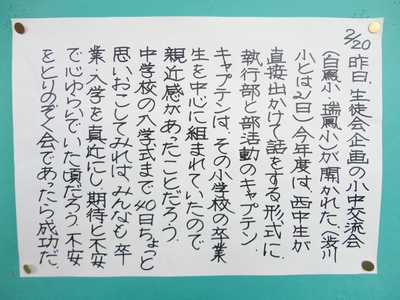 2/20 昨日、生徒会企画の小中交流会
(白鳳小、瑞鳳小)が開かれた〈渋川
小とは21日〉今年度は、西中生が
直接出かけて話をする形式に、
執行部と部活動のキャプテン。
キャプテンは、その小学校の卒業
生を中心に組まれていたので
親近感があったことだろう。
中学校の入学式まで40日ちょっと
思いおこしてみれば、みんなも卒
業、入学を真近にし、期待と不安
で心ゆらいでいた頃だろう。不安
をとりのぞく会であったら成功だ。